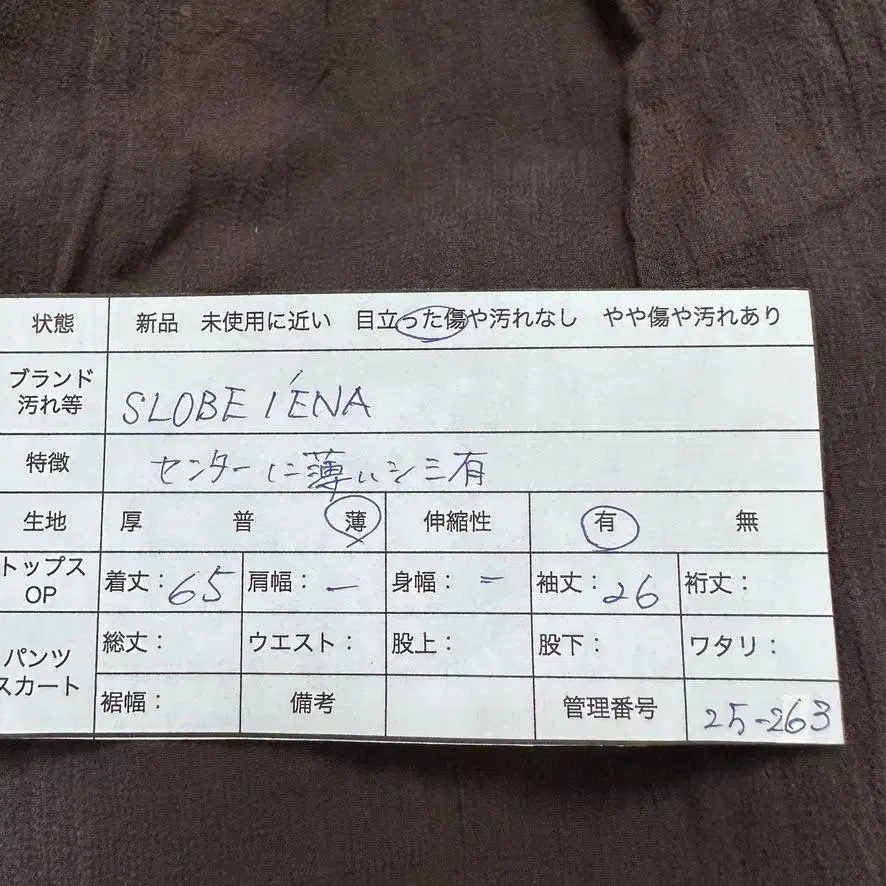 状態 新品 未使用に近い 目立った傷や汚れなし やや傷や汚れあり
ブランド
汚れ等 SLOBE IÉNA
特徴 センターに薄いシミ有
生地 厚 普 薄 伸縮性 有 無
トップス
OP 着丈：65 肩幅：ー 身幅：= 袖丈：26 裄丈：
パンツ
スカート 総丈： ウエスト： 股上： 股下： ワタリ：
裾幅： 備考 管理番号 25-263